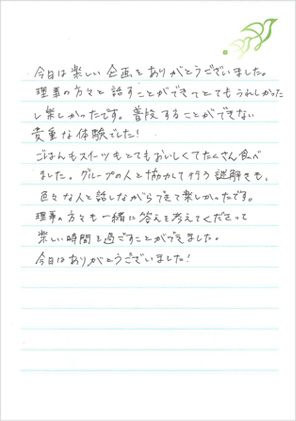 今日は楽しい企画をありがとうございました。
理事の方々と話すことができてとてもうれしかった
し楽しかったです。普段することができない
貴重な体験でした!
ごはんもスイーツもとてもおいしくてたくさん食べ
ました。グループの人と協力して行う謎解きも、
色々な人と話しながらできて楽しかったです。
理事の方々も一緒に答えを考えてくださって
楽しい時間を過ごすことができました。
今日はありがとうございました!